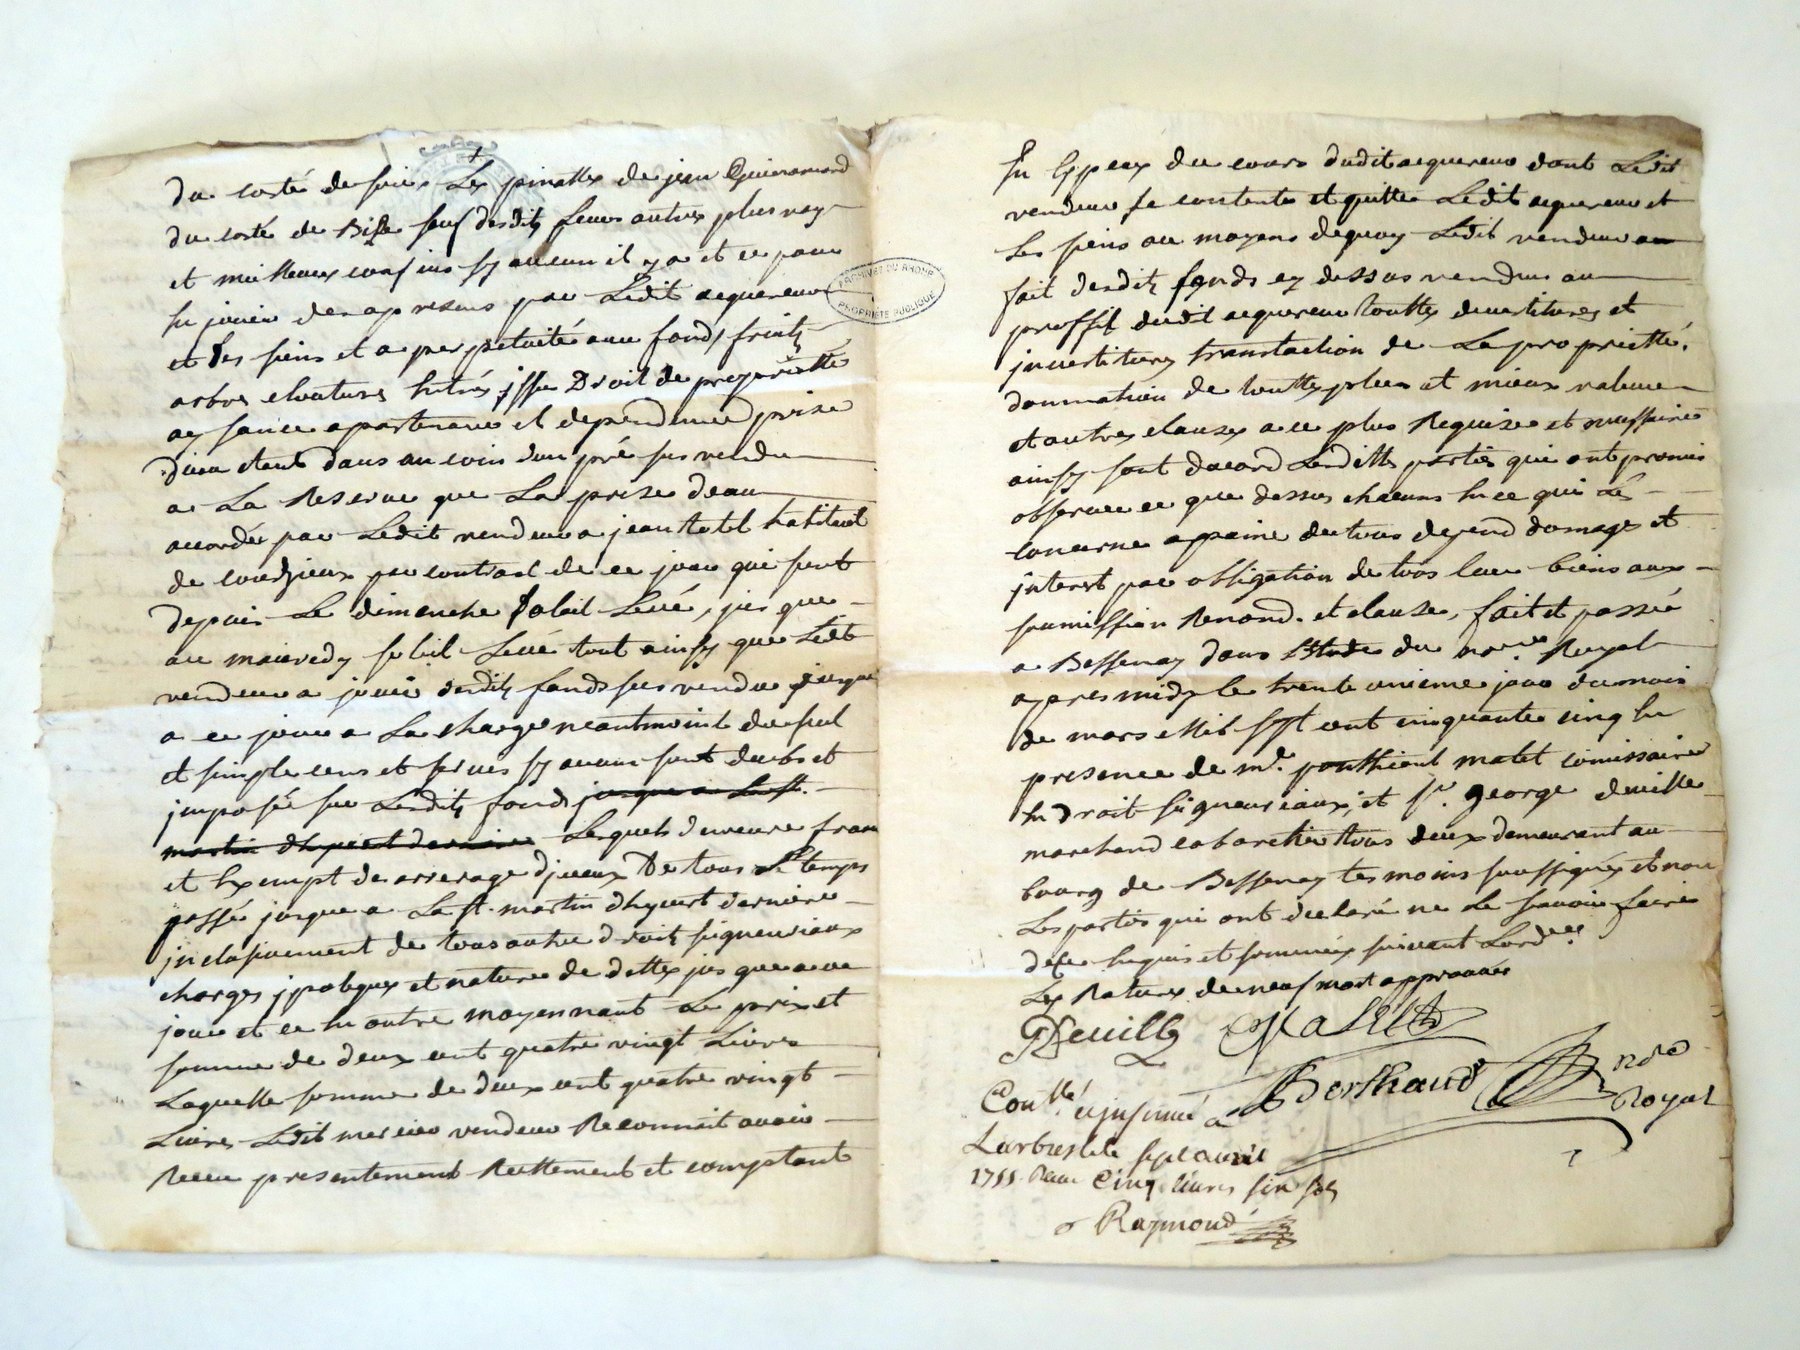 du costé de soir + Les pinattes de jean Guinamand
du costé de Bise sauf desdits Leurs autres plus vray
et meilleurs confins sy aucun il y a et ce pour
en jouir des apresens par Ledit acquereur
et Les siens et a perpetuité avec fonds fruits
arbres clotures Entrés issue Droit de proprietté
aysance apartenance et dependence prise
d'eau etant dans au coin dun pré sus vendu
a La Reserve que La prise deau
accordée par Ledit vendeur a jean habitant
de courzieux par contract de ce jour qui sont
depuis Le dimanche Soleil Levé, jus que
au maivedy soleil Levé tout ainsy que Ledit
vendeur a joui desdits fonds sus vendu jusque
a ce jour a La charge neantmoint du seul
et simple cens et servis sy aucun sont deubs et
imposés sur Lesdits fonds jusque a La St.
martin dhyvert derniere Lesquels demeure franc
et Exempt de arrerage diceux De tous Le temps
passé jusque a La St. martin dhyvert derniere
inclusivement de tous autre droits seigneuriaux
charges ipoteques et nature de dettes jus que a ce
jour et ce En outre moyennant Le prix et
somme de deux cent quatre vingt Livres
Laquelle somme de deux cent quatre vingt
Livres Ledit mercier vendeur Reconnoit avoir
Receu presentement Reellement et comptant
En Especes du cours dudit acquereur dont Ledit
vendeur se contente et quitte Ledit acquereur et
Les siens au moyens dequoy Ledit vendeur a
fait desdits fonds cy dessus vendus au
proffit dudit acquereur touttes devestitures et
investitures translaction de La proprietté,
donnation de touttes plus et mieux valeur
et autres clauses a ce plus Requises et necessaire
ainsy sont dacord Lesdittes parties qui ont promis
observer ce que dessus chacuns En ce qui Les
concerne a paine de tous depend domages et
interest par obligation de tous leur biens aux
soumission Renond. et clause, fait et passée
a Bessenay dans Etude du Nore. Royal
apres midy le trente unieme jour du mois
de mars Mil sept cent cinquante cinq En
presence de mr. ponthiont malet comissaire
En droit seigneuriaux, et sr. george deuille
marchand cabaretier tous deux demeurant au
bourg de Bessenay tesmoins soussignés et non
Les parties qui ont declaré ne Le savoir faire
de ce Enquis et sommées suivant Lordce.
Les Ratures de neuf mots approuvés
GDeuille Malet
Berthaud Nore
Royal
Conllé et insinué a
Larbresle le sept avril
1755. Receu Cinq livres six sols
Raymond
ARCHIVES DU RHONE
PROPRIETE PUBLIQUE